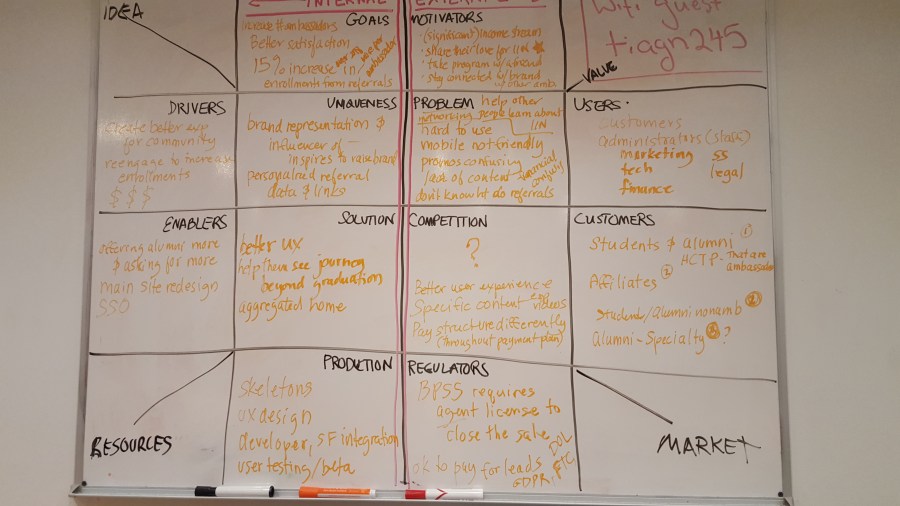 IDEA
INTERNAL
GOALS
increase # ambassadors
Better satisfaction
15% increase in
ambassador
enrollments from referrals
MOTIVATORS
• (significant) income stream
• share their love for IIN
• take program w/ a friend
• stay connected w/ brand
w/ other amba
VALUE
Wifi guest
tiagn245
DRIVERS
create better exp
for community
reengage to increase
enrollments
$ $ $
UNIQUENESS
brand representation &
influencer of -
inspires to raise brand
personalized referral
data & links
PROBLEM
help other
networking people learn about
IIN
hard to use
mobile not friendly
promos confusing
lack of content
financial
confusing
don't know ht do referrals
USERS
Customers
administrators (staff)
marketing ss
tech legal
finance
ENABLERS
offering alumni more
& asking for more
main site redesign
SSO
SOLUTION
better UX
help/have see journey
beyond graduation
aggregated home
COMPETITION
?
Better user experience
Specific content eg videos
Pay structure differently
(throughout payment plan)
CUSTOMERS
Students & alumni 1
HCTP - That are
ambassador
Affiliates 2
Student/Alumni nonamb 2
Alumni - Specialty 3 ?
RESOURCES
PRODUCTION
skeletons
ux design
developer, SF integration
user testing/beta
REGULATORS
BPSS requires
agent license to
close the sale
DOL
ok to pay for leads
GDPR, FTC
MARKET